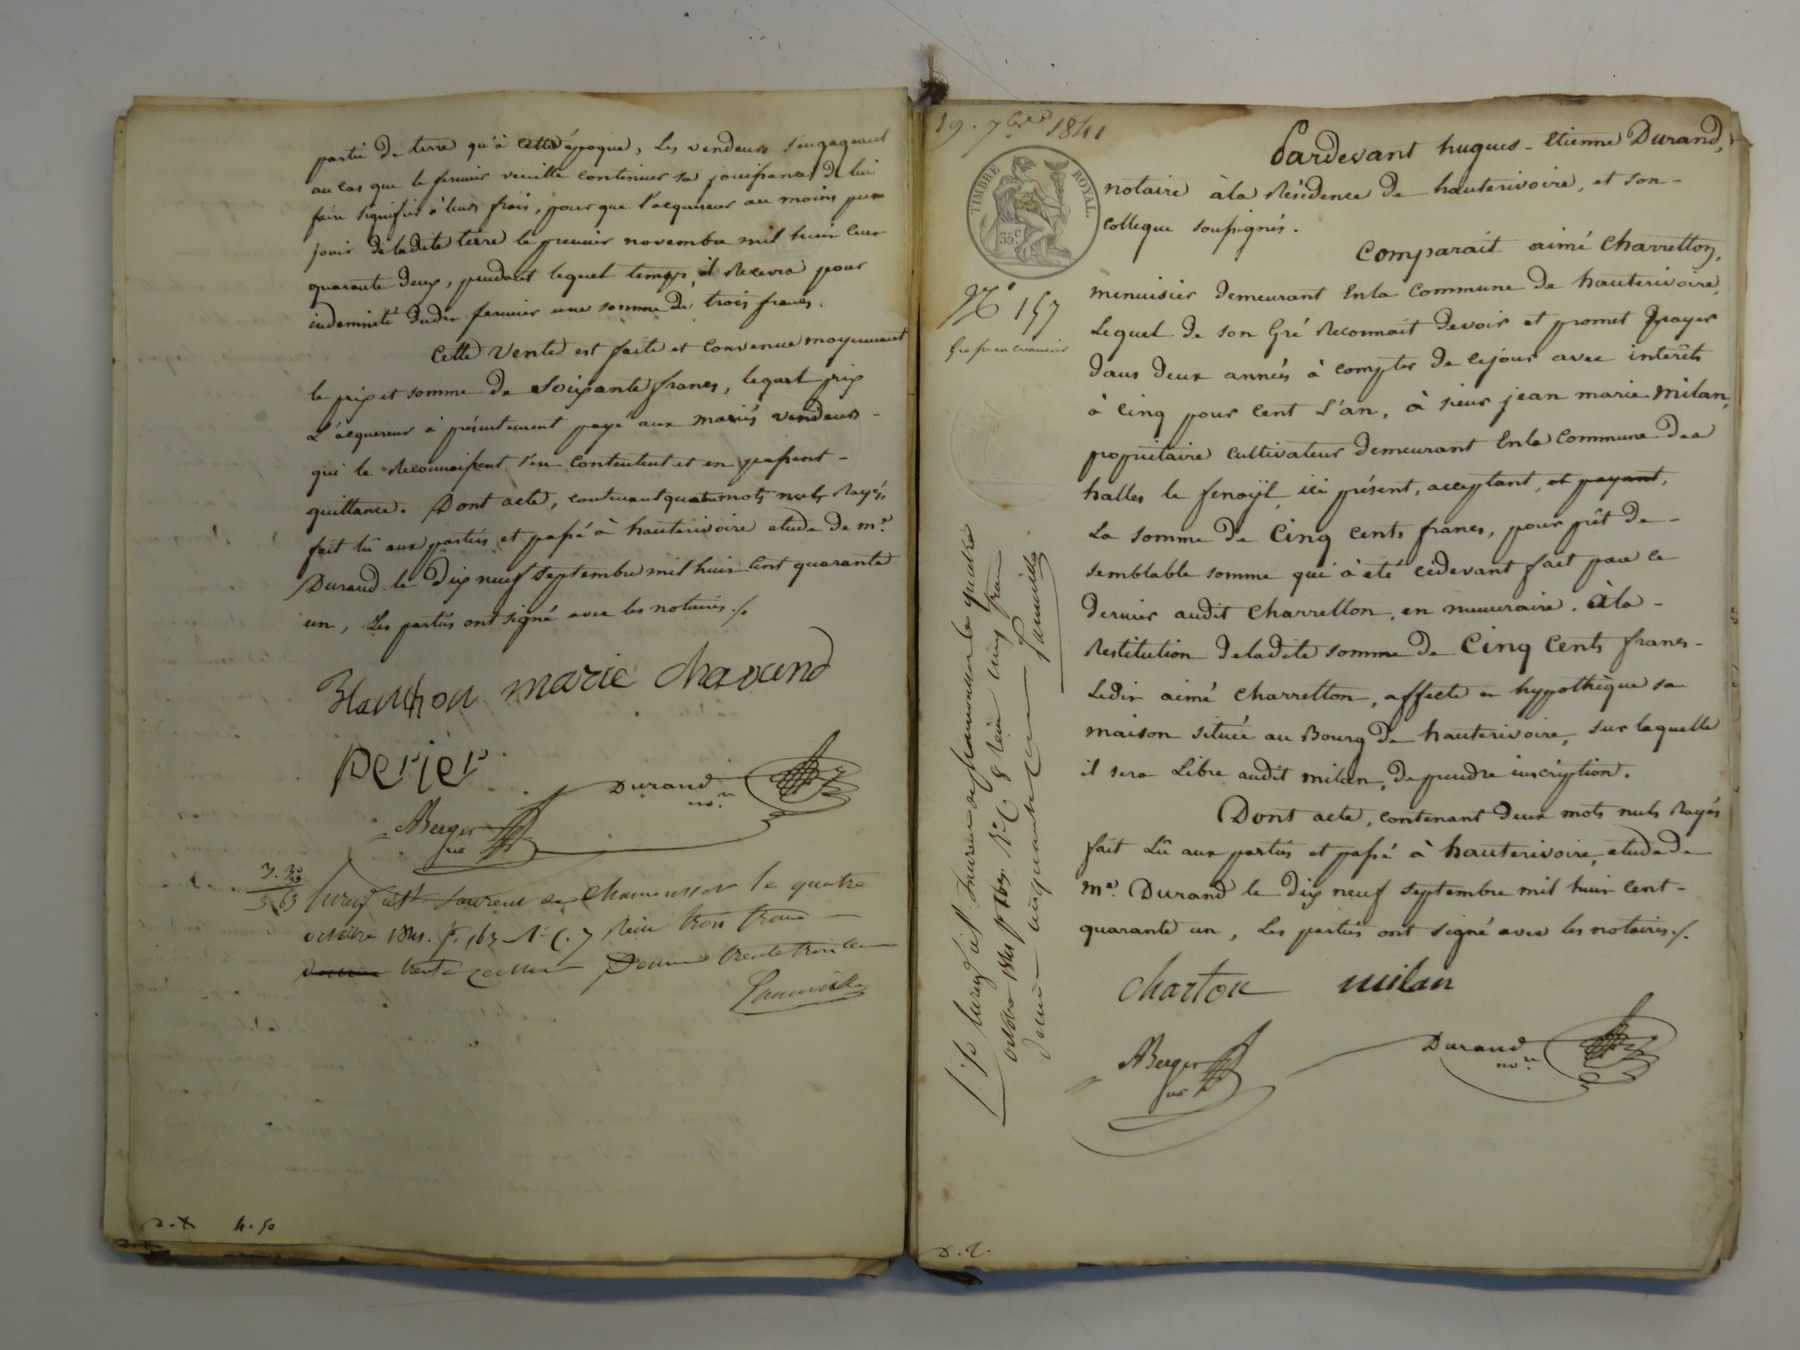 partie de terre qu'à cette époque, les vendeurs s'engageant
au cas que le fermier veuille continuer sa jouissance de lui
faire signifier à leurs frais, pour que l'acquereur au moins puisse
jouir de ladite terre le premier novembre mil huit cent
quarante deux, pendant lequel temps, il recevra pour
indemnité dudit fermier une somme de trois francs.
Cette Vente est faite et convenue moyennant
le prix et somme de soixante francs, lequel prix
L'acquereur à présentement payé aux mariés vendeurs -
qui le reconnaissent s'en contentent et en passent -
quittance. Dont acte, contenant quatre mots nuls rayés,
fait lû aux parties et passé à hauterivoire etude de me.
Durand le dix neuf septembre mil huit cent quarante
un, Les parties ont signé avec les notaires./.
marie chavend
perier
Durand
no.re
ABerger
no
3.30
3 63
Enreg. à St Laurent de Chamousset le quatre
octobre 1841. fo. 163 Ro. C. 7 Reçu trois francs
trente centimes Décime trente trois cen
4.50
19. 7bre 1841
TIMBRE ROYAL.
35c.
No 157
Pardevant hugues - Etienne Durand,
notaire à la Résidence de hauterivoire, et son -
collegue soussignés.
Comparait aimé Charretton,
menuisier demeurant En la Commune de hauterivoire,
Lequel de son Gré Reconnait devoir et promet payer
dans deux années à compter de ce jour avec intérêts
à cinq pour cent L'an, à sieur jean marie milan,
propriétaire cultivateur demeurant En la Commune des
halles le fenoÿl, ici présent, acceptant, et payant,
La somme de Cinq cents francs, pour prêt de -
semblable somme qui à été cidevant fait par ce
dernier audit Charretton, en numeraire. à la -
Restitution de ladite somme de Cinq Cents francs -
Ledit aimé Charretton, affecte et hypothèque sa
maison située au Bourg de hauterivoire, sur laquelle
il sera Libre audit milan, de prendre inscription.
Dont acte, contenant deux mots nuls rayés
fait Lû aux parties et passé à hauterivoire, etude de
me. Durand le dix neuf septembre mil huit cent -
quarante un, Les parties ont signé avec les notaires./.
charton milan
ABerger
no
Durand
no.re